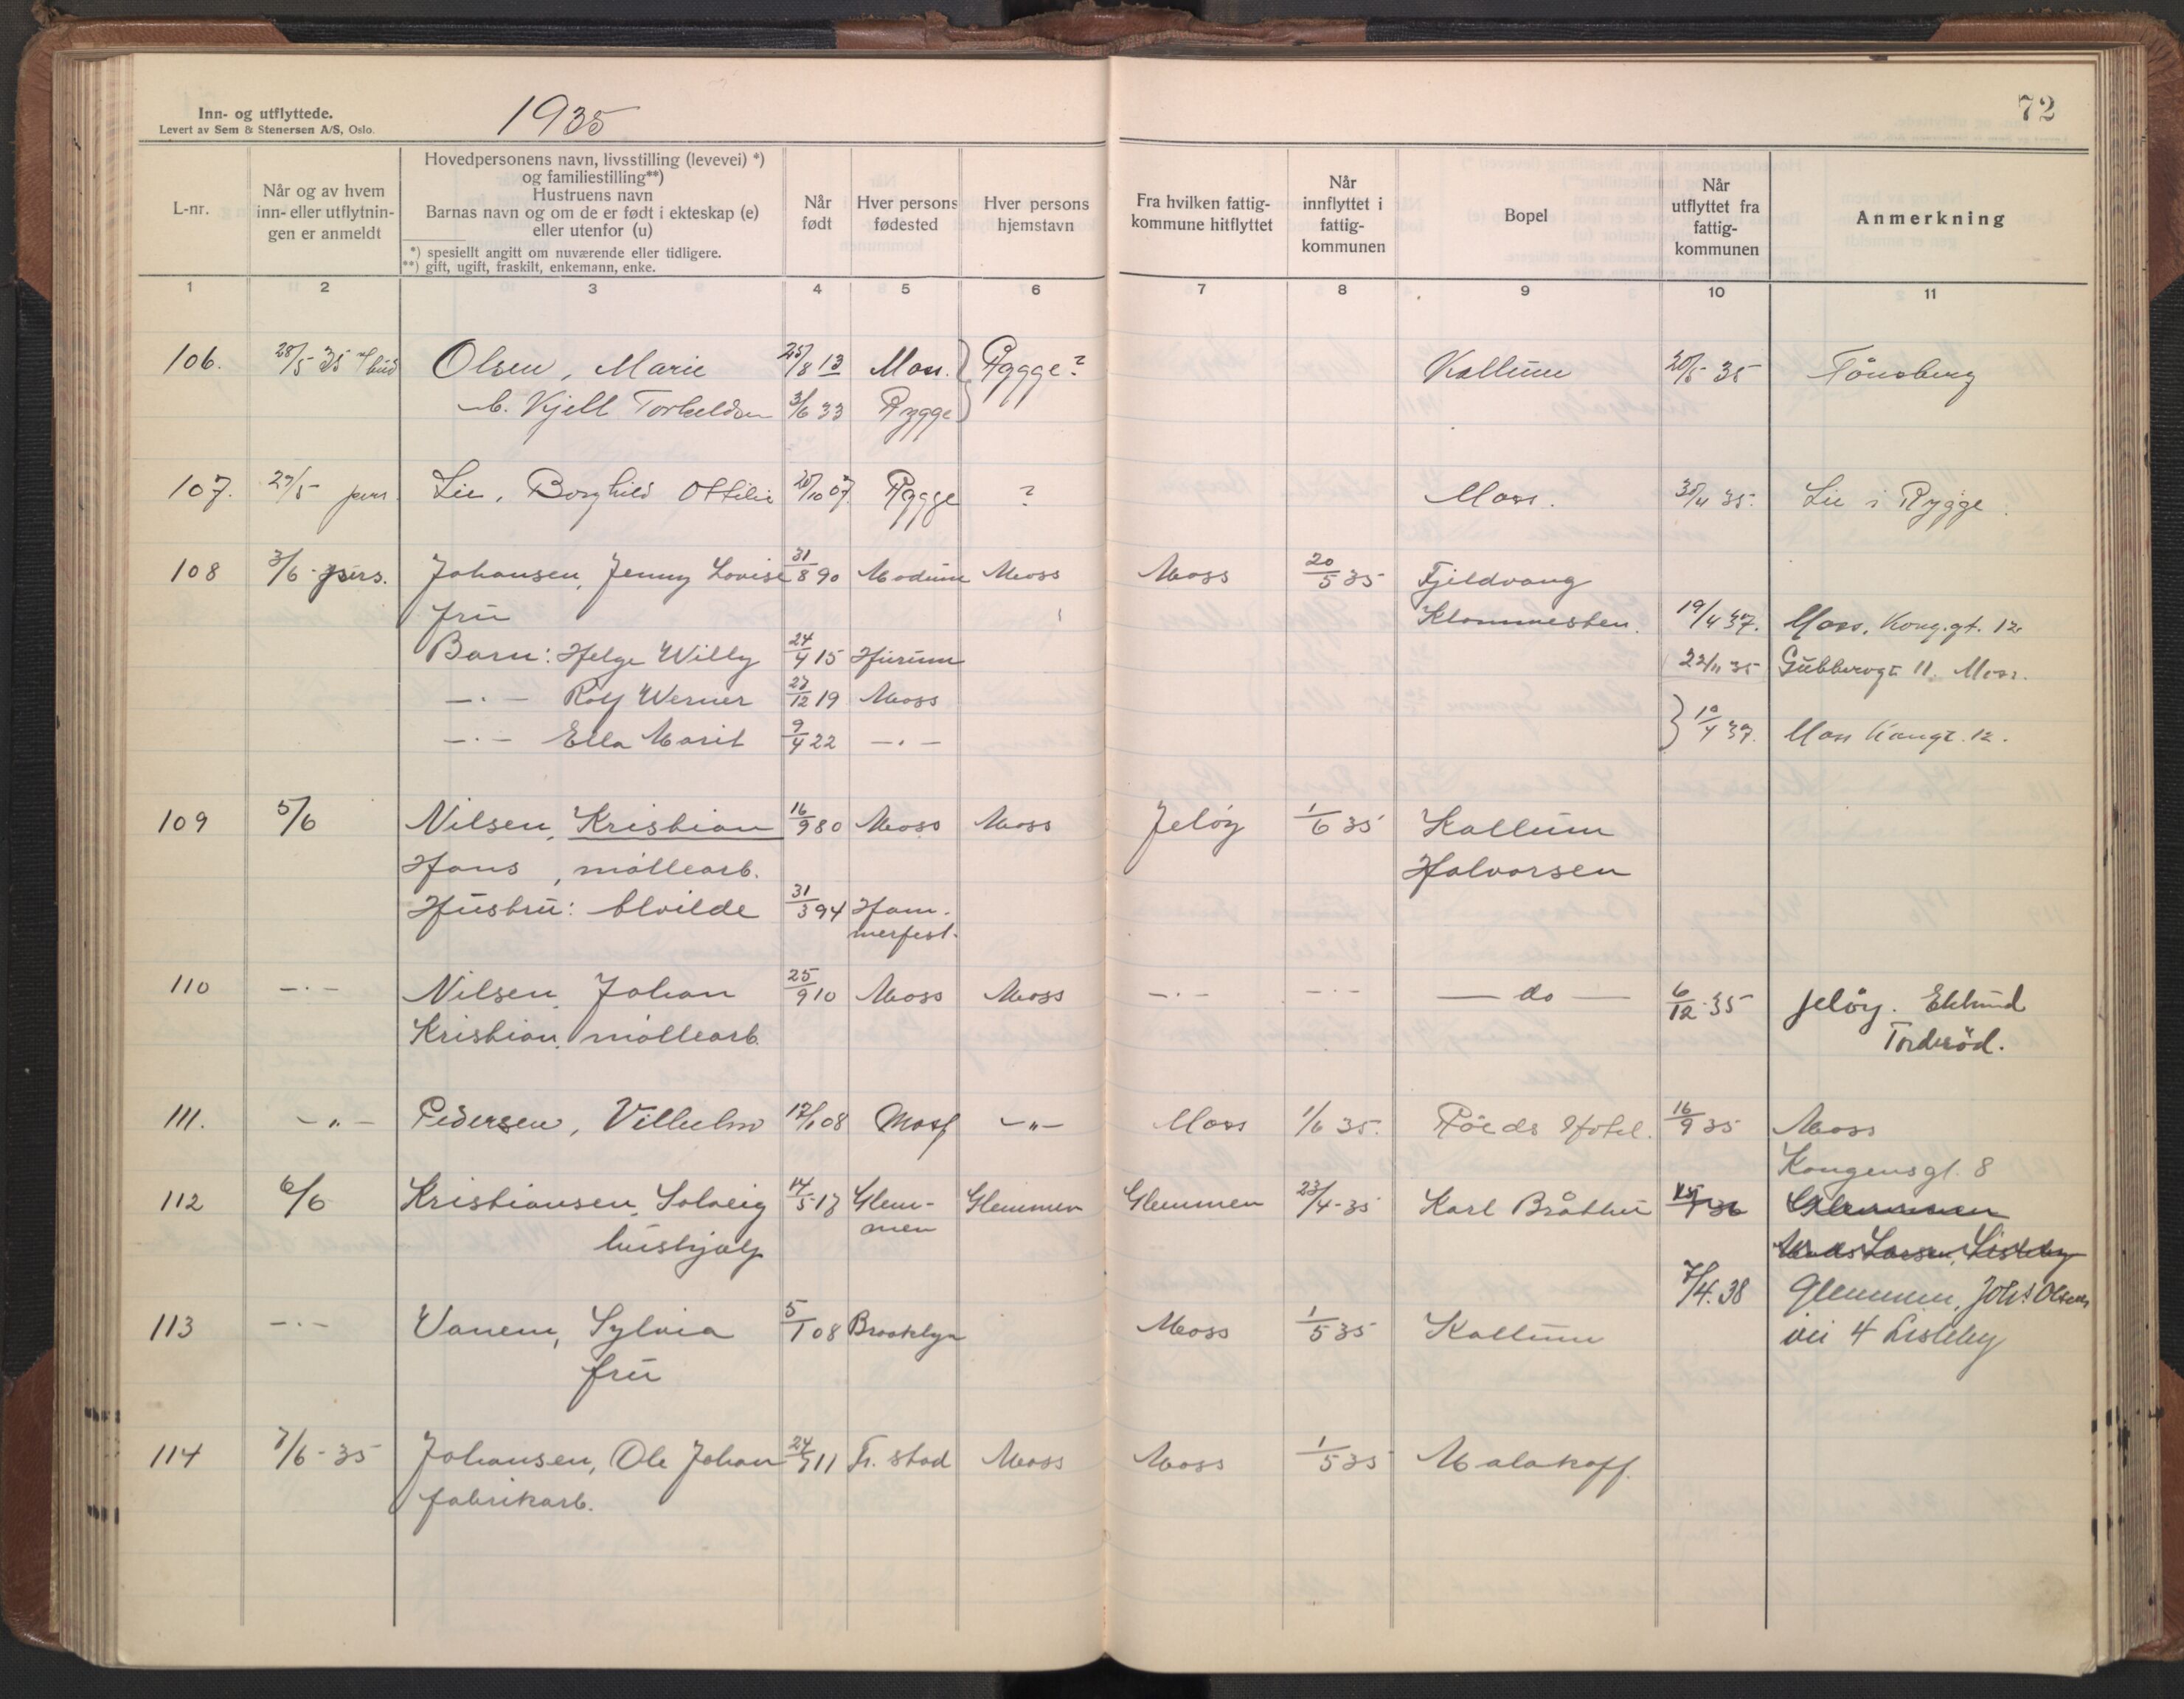 Inn- og utflyttede.
Levert av Sem & Stenersen A/S, Oslo.
1935
72
L-nr.
Når og av hvem inn- eller utflytnin- gen er anmeldt
Hovedpersonens navn, livsstilling (levevei) *)
og familiestilling**)
Hustruens navn
Barnas navn og om de er født i ekteskap (e)
eller utenfor (u)
*) spesiellt angitt om nuværende eller tidligere.
**) gift, ugift, fraskilt, enkemann, enke.
Når født
Hver persons fødested
Hver persons hjemstavn
Fra hvilken fattig- kommune hitflyttet
Når innflyttet i fattig- kommunen
Bopel
Når utflyttet fra fattig- kommunen
Anmerkning
1 2 3 4 5 6 7 8 9 10 11
106. 28/5 35 Olsen, Marie 25/8 13 Moss. Rygge? Kallum 20/5 35 Tönsberg
b. Kjell Torkeldsen 3/6 33 Rygge
107. 29/5 pers. Lie, Borghild Ottilie 20/10 07 Rygge ? Moss. 30/4 35. Lie i Rygge.
108 3/6 pers. Johansen, Jenny Lovise 31/8 90 Modum Moss Moss 20/5 35 Fjeldvang
frü Klommesten. 19/4 37. Moss, Kong.gt. 12
Barn: Helge Willy 24/4 15 Hürum 22/11 35 Gübberogt 11. Moss.
-·- Rolf Werner 27/12 19 Moss
-·- Ella Marit 9/4 22 -·- } 19/4 37. Moss Kongt. 12.
109 5/6 Nilsen, Kristian 16/9 80 Moss Moss Jelöy 1/6 35 Kallüm
Hans, möllearb. Halvorsen
Hüstrü: Alvilde 31/3 94 Ham-
merfest.
110 -·- Nilsen, Johan 25/9 10 Moss Moss -·- -·- — do — 6/12 35 Jelöy. Eklund
Kristian, möllearb. Torderöd.
111. -"- Pedersen, Vilhelm 17/1 08 Moss -"- Moss 1/6 35. Röeds Hotel. 16/9 35 Moss
Kongensgt. 8
112 6/6 Kristiansen, Solveig 14/5 17 Glem- Glemmen Glemmen 23/4-35 Karl Bråthen Glemmen
hüshjelp men Larsen, Lisleby
7/4.38 Glemmen, Johs Olsens
113 -·- Vanem, Sylvia 5/1 08 Brooklyn Moss 1/5 35 Kallüm vei 4 Lisleby
frü
114 7/6-35 Johansen, Ole Johan 24/7 11 Fr. stad Moss Moss 1/5 35 Malakoff.
fabrikarb.